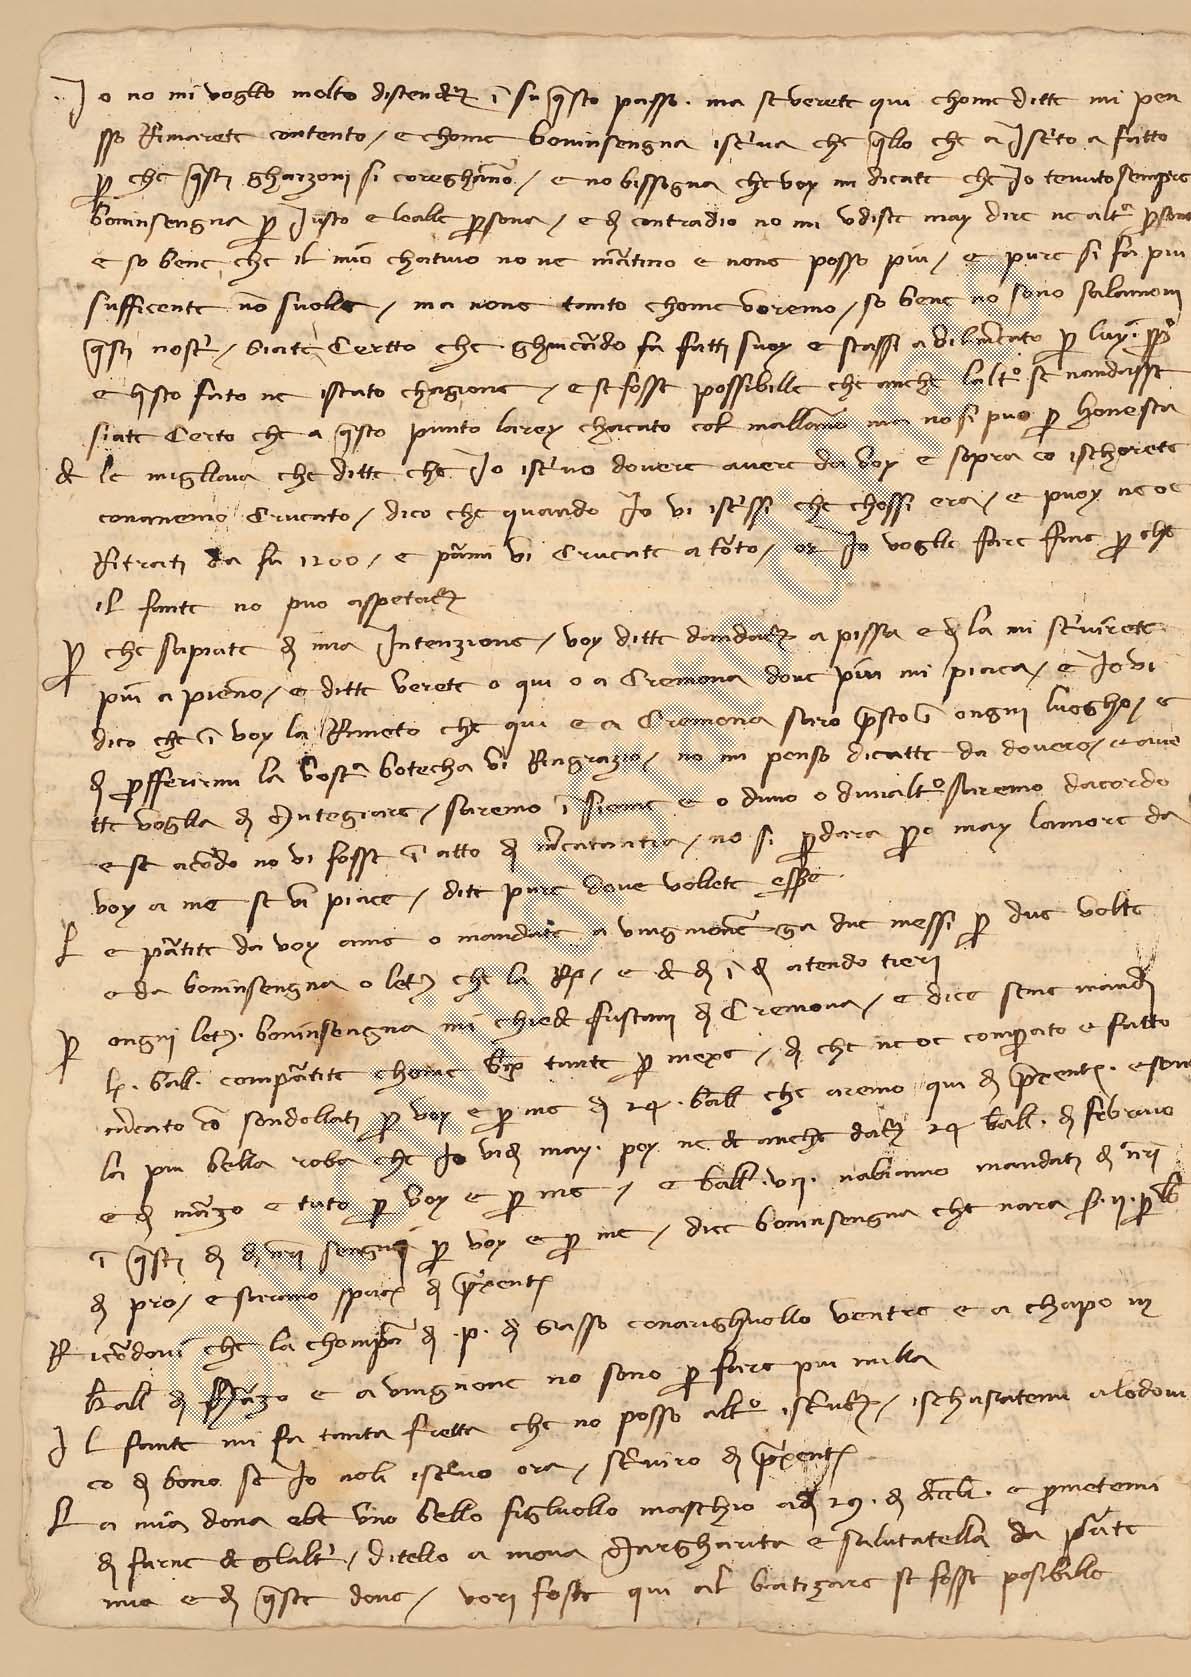 Io no mi voglio molto distender ī su q̄sto passo. ma se verete qui chome ditte mi pen
sso Rimarete contento / e chome boninsengna iscriva che q̄llo che a Iscrito a fatto
p̄ che q̄sti gharzoni si coreghino / e no bissogna che voy mi dicate che Io tenuto sempre
boninsengna p̄ Iusto e lealle p̄sona / e di contradio no mi vdiste may dire ne altra p̄sona
e so bene che il mio chativo no ne matino e none posso piu / e pure si fa piu
sufficente no suolle / ma none tanto chome voremo / so bene no sono salamoni
q̄sti nostri / siate Certto che ghuicardo fa fatti suoy e stassi a di merchato p̄ luy
e q̄sto fato ne istato chagione / e se fosse possibille che anche laltro se nandasse
siate Certo che a q̄sto punto larey chacato col mallanno ma no si puo p̄ honesta
de le migliaia che ditte che Io iscrivo dovere avere da voy e sopra co ischorete
conanemo Crucato / dico che quando Io vi iscrissi che chossi era / e puoy ne oe
Ritrati da fa 1200 / e parmi vi Crucate a torto / or Io voglio fare fine p̄ che
il fante no puo aspetare
P̄ che sapiate di mia Intenzione / voy ditte dandare a pissa e di la mi scrivirete
piu a pieno / e ditte verete o qui o a Cremona dove piu mi piaca / e Io vi
dico che ī voy la Rimeto che qui e a Cremona saro p̄sto ī ongni luogho / e
di p̄fferirmi la vostra botecha vi Ringrazio / no mi penso dicatte da dovero / e ave
tte voglia di Motegiare / saremo ī sieme e o duno o dunaltro saremo dacordo
e se acordo no vi fosse ī atto di merchatantia / no si p̄dara p̄o may lamore da
voy a me se vi piace / dite pure dove vollete essere
L e partite da voy ame o mandate a vingnone ga due messi p̄ due volte
e da boninsengna o letere che la Rp / e de di ī di atendo tieri
P̄ ongni letera. boninsengna mi chiede fustani di Cremona / e dice sene mandi
ball. compartite chome tante p̄ mexe / di che ne oe comprato e fatto
merchato co sondellati p̄ voy e p̄ me di 24. ball che aremo qui di p̄xente. e sono
la piu bella roba che Io vidi may. poy ne de anche dare 24 ball. di febraio
e di marzo e tuto p̄ voy e p̄ me / e ball. vii. nabiamo mandati di nostri
ī q̄sti di di nostri sengni p̄ voy e p̄ me / dice boninsengna che nara
di pro / e saremo spaciati di p̄xente
Ricordovi che la chompa di .p. di Sasso conarighuollo ventre e a chapo
ball di Marzo e a vingnone no sono p̄ fare piu nulla
Il fante mi fa tanta fretta che no posso altro iscrivere / ischusatemi a lodovi
co di bono se Io noli iscrivo ora / scriviro di p̄xente
La mia dona ebe vno bello figluollo maschio adi 29. di dicembre. e prometemi
di farne de glaltri / ditello a mona Margharita e salutatella da parte
mia e di q̄ste done / vori foste qui al batizare se fosse posibille